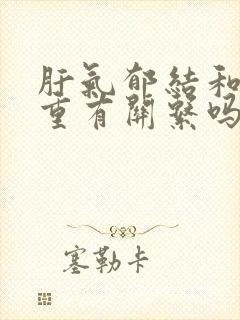 肝氣郁結和
重有關繫嗎
塞勒卡